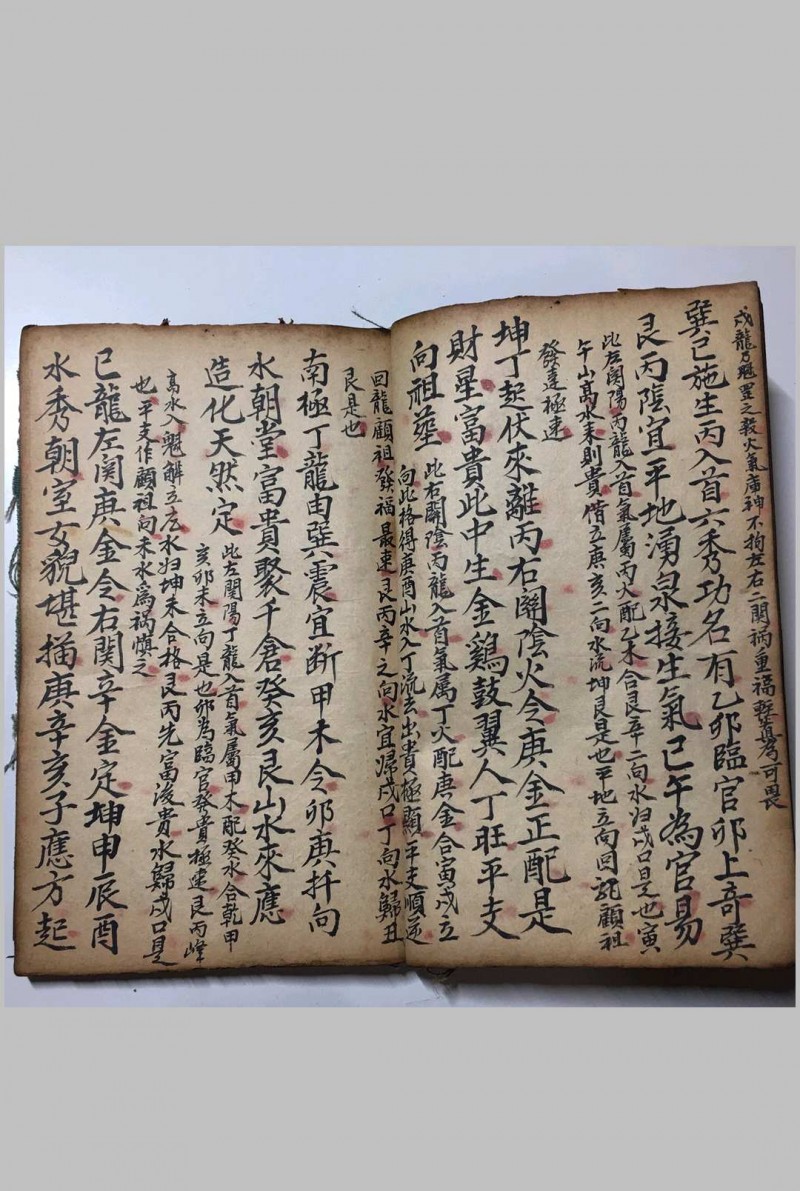 戌龍乃魁罡之殺火氣廉神不拘左右二関禍重福輕真為可畏
巽巳施生丙入首六秀功名有乙卯臨官卯上奇巽
艮丙陰宜平地湧泉接生氣巳午為官易
此左関陽丙龍入首氣屬丙火配乙木合艮辛二向水归戌口是也寅
午山高水来則貴借立庚亥二向水流坤艮是也平地立向回龍顧祖
發達極速
坤丁起伏來離丙右關陰火令庚金正配是
財星富貴此中生金鷄鼓翼人丁旺平支
向祖塋
此右關陰丙龍入首氣属丁火配庚金合寅戌立
向此格得庚酉山水入丁流去出貴極顯平支順逆
回龍顧祖發福最速艮丙辛之向水宜歸戌口丁向水歸丑
艮是也
南極丁龍由巽震宜斷甲木令卯庚扦向
水朝堂富貴聚千倉癸亥艮山水來應
造化天然定
此左関陽丁龍入首氣屬甲木配癸水合乾甲
亥卯未立向是也卯為臨官發貴極速艮丙峰
高水入魁解立庒水归坤未合格艮丙先富後貴水歸戌口是
也平支作顧祖向未水為禍慎之
巳龍左関庚金令右関辛金定坤申辰酉
水秀朝室女貌堪描庚辛亥子應方起